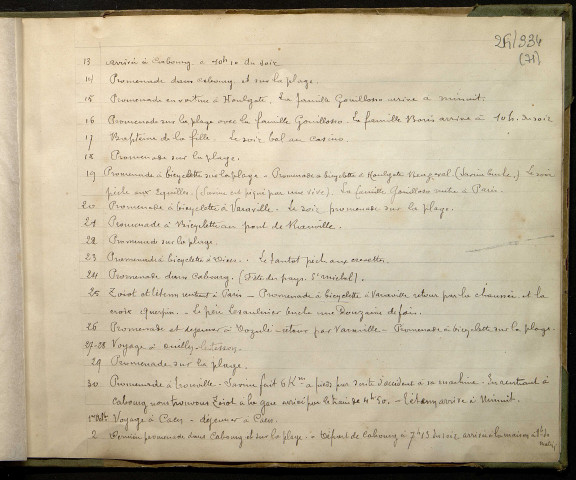 24/934
(71)
13 Arrivée à Cabourg à 10h10 du soir
14 Promenade dans Cabourg et sur la plage.
15 Promenade en voiture à Houlgate. La famille Gouillosso arrive à minuit.
16 Promenade sur la plage avec la famille Gouillosso. La famille Boris arrive à 10h. du soir
17 Baptême de la fille. Le soir bal au casino.
18 Promenade sur la plage.
19 Promenade à bicyclette sur la plage - Promenade à bicyclette à Houlgate Beuzeval. Le soir
pêche aux équilles. (Jeanne est piqué par une vive). La famille Gouillosso rentre à Paris.
20 Promenade à bicyclette à Varaville - Le soir promenade sur la plage.
21 Promenade à bicyclette au pont de Varaville.
22 Promenade sur la plage.
23 Promenade à bicyclette à Dives. Le tantot pêche aux crevettes.
24 Promenade dans Cabourg. (Fête des pays St Michel).
25 Zoiot et Etienne rentrent à Paris - Promenade à bicyclette à Varaville retour par la chaussée et la
croix Le père une Douzaine de fois.
26 Promenade et dejeuner à Dozulé - retour par Varaville - Promenade à bicyclette sur la plage.
27-28 Voyage à Ouilly
29 Promenade sur la plage.
30 Promenade à Trouville - fait 6 Km à pied par suite d'accident à sa machine. En rentrant à
Cabourg nous trouvons Zoiot à la gare arrivé par le train de 4h50. - arrive à Minuit.
Voyage à Caen - déjeuner à Caen.
2 Dernière promenade dans Cabourg et sur la plage. - Départ de Cabourg à 7h15 du soir, arrivée à la maison à 1h
matin